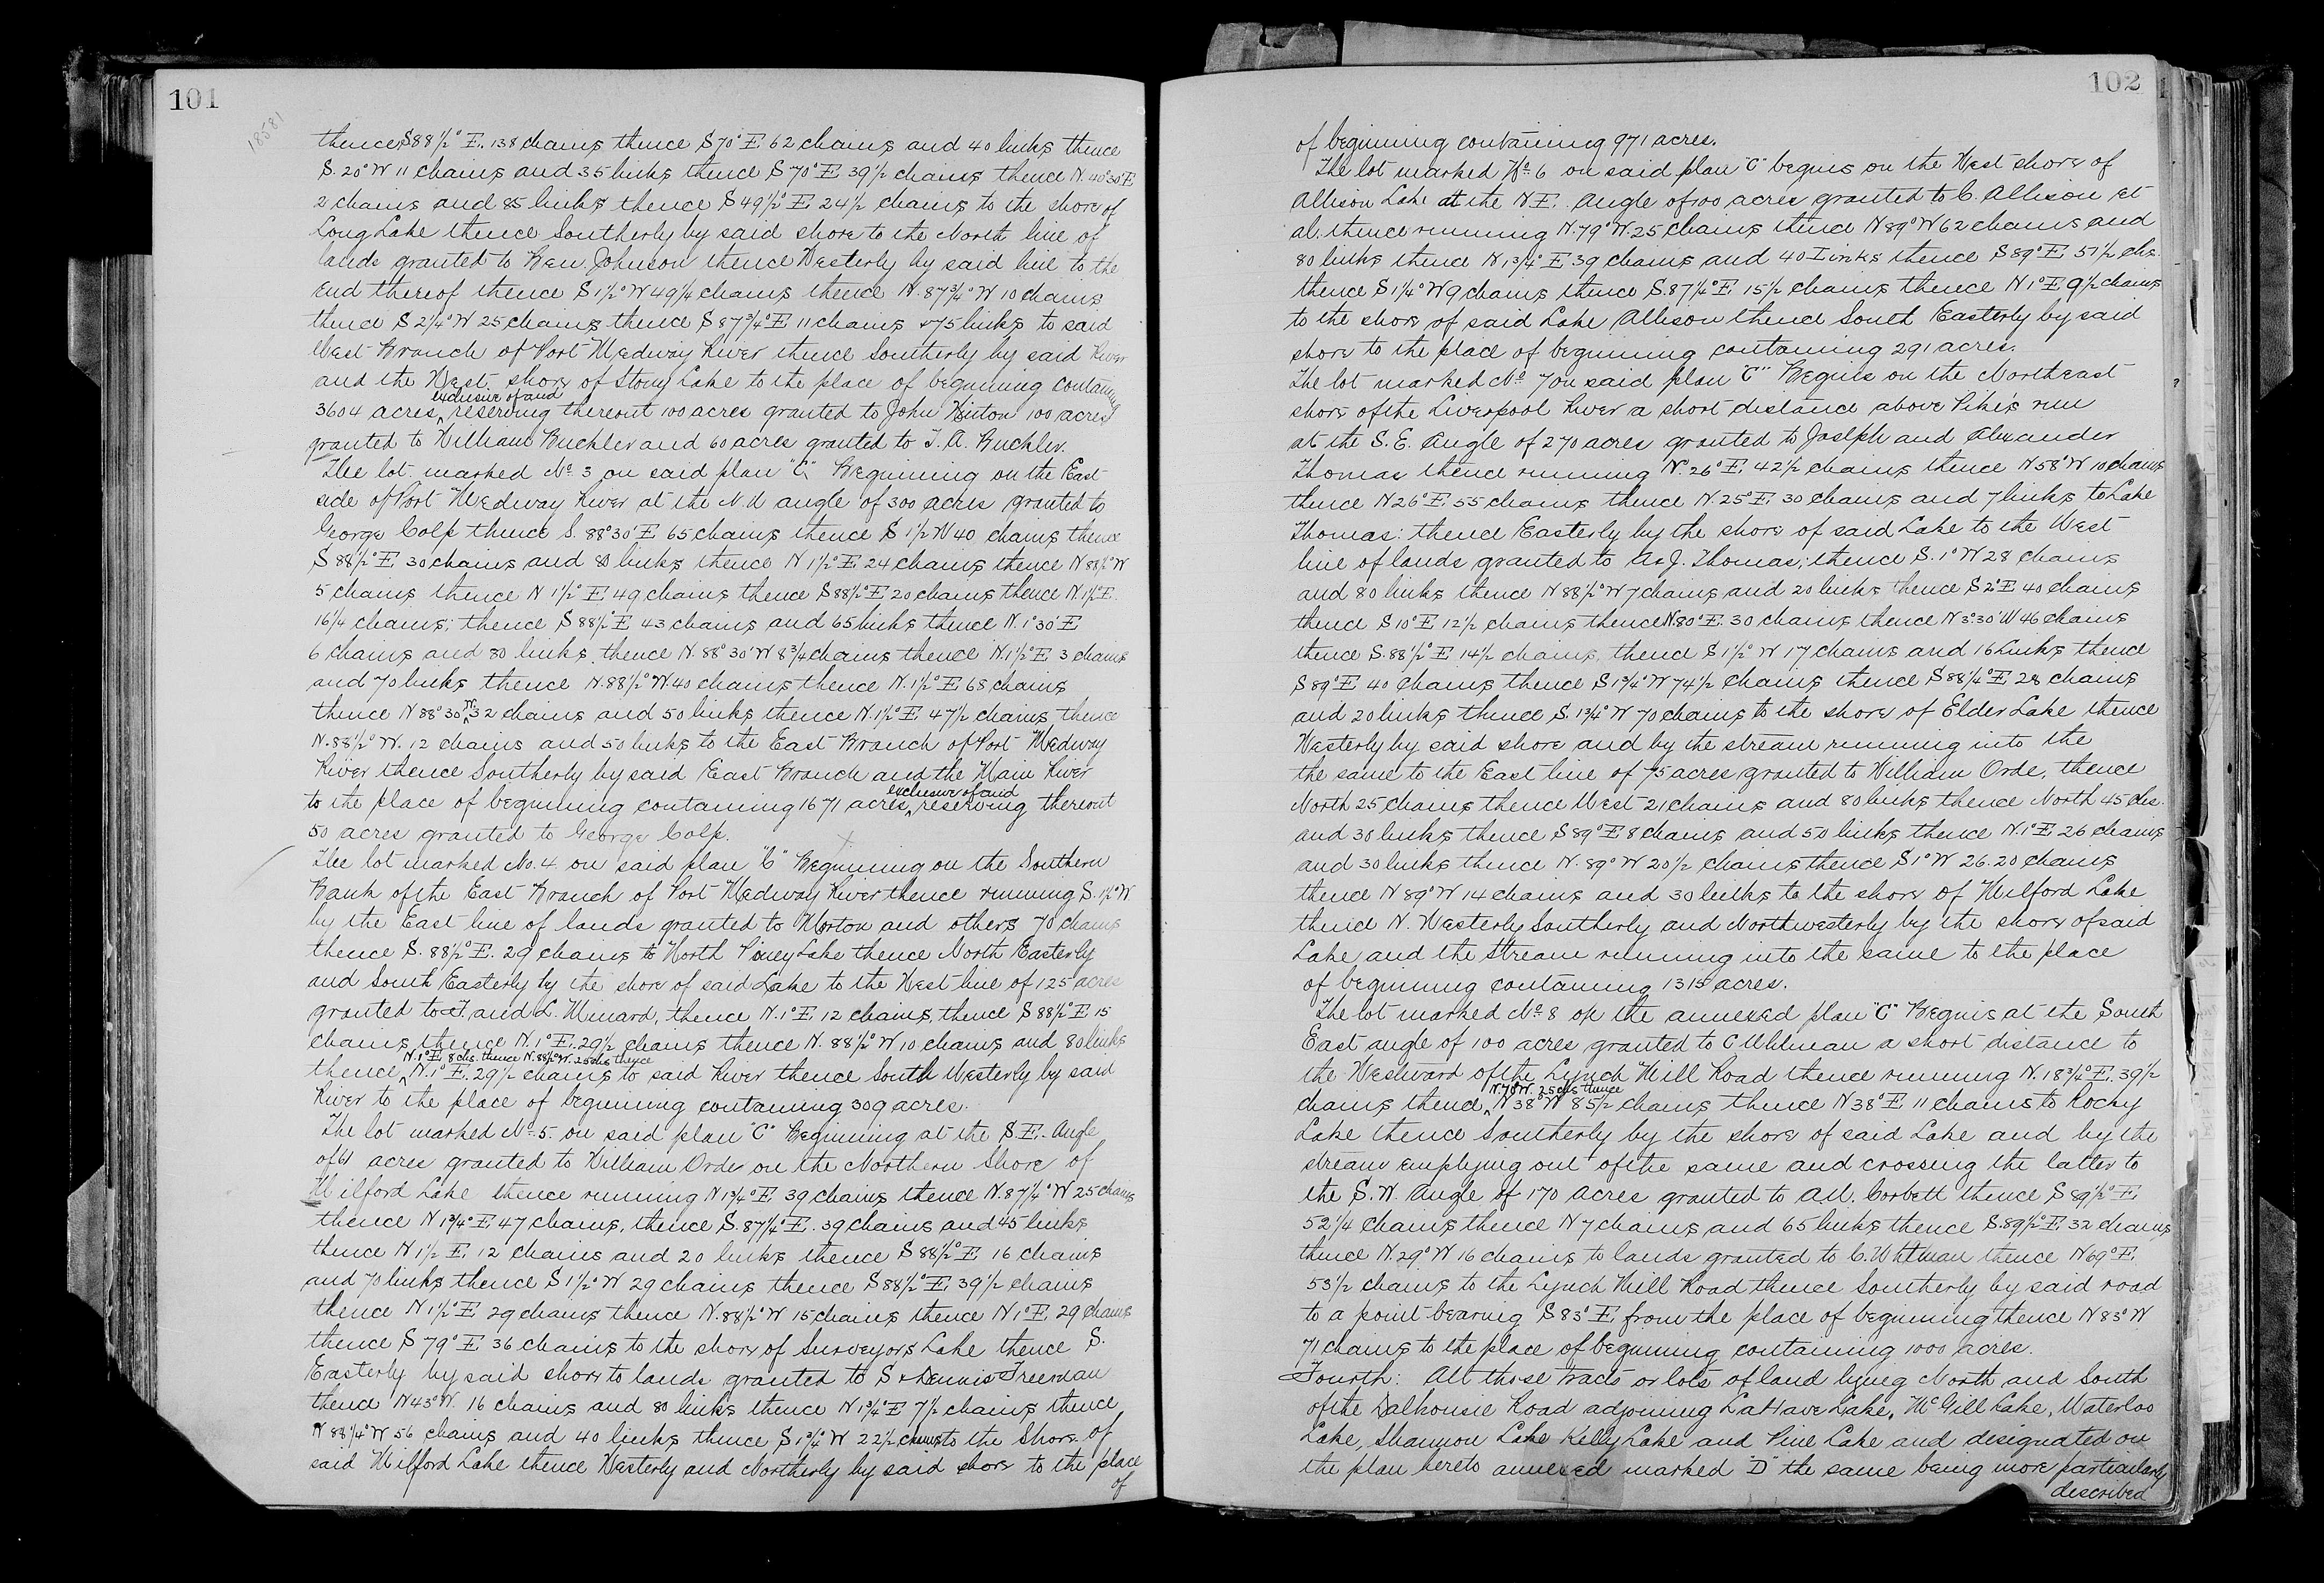 101
18581
thence S88½° E. 138 chains thence S70° E 62 chains and 40 links thence
S. 20° W 11 chains and 35 links thence S 70° E 39½ chains thence N. 40°30' E
2 chains and 85 links thence S 49½° E 24½ chains to the shore of
Long Lake thence Southerly by said shore to the North line of
lands granted to Ben. Johnson thence Westerly by said line to the
end thereof thence S 1½° W 49¼ chains thence N. 87¾° W 10 chains
thence S 2¼° W 25 chains thence S 87¾° E 11 chains & 75 links to said
West Branch of Port Medway River thence Southerly by said River
and the West shore of Stony Lake to the place of beginning containing
exclusive of and
3604 acres, reserving thereout 100 acres granted to John Hinton 100 acres
granted to William Buchler and 60 acres granted to J. A. Buchler.
The lot marked No. 3 on said plan "C" Beginning on the East
side of Port Medway River at the N.W angle of 300 acres granted to
George Colp thence S. 88°30' E 65 chains thence S 1½ W 40 chains thence
S 88½° E 30 chains and 80 links thence N 1½° E 24 chains thence N 88½° W
5 chains thence N 1½° E 49 chains thence S 88½° E 20 chains thence N. 1½° E.
16¼ chains; thence S 88½° E 43 chains and 65 links thence N. 1°30' E
6 chains and 80 links thence N. 88°30' W 8¾ chains thence N. 1½° E 3 chains
and 70 links thence N. 88½° W. 40 chains thence N. 1½° E 68 chains
thence N 88°30' W. 32 chains and 50 links thence N. 1½° E 47½ chains thence
N. 88½° W. 12 chains and 50 links to the East Branch of Port Medway
River thence Southerly by said East Branch and the Main River
exclusive of and
to the place of beginning containing 1671 acres, reserving thereout
50 acres granted to George Colp.
The lot marked No. 4 on said plan "C" Beginning on the Southern
Bank of the East Branch of Port Medway River thence running S. 1½° W
by the East line of lands granted to Morton and others 70 chains
thence S. 88½° E. 29 chains to North Piney Lake thence North Easterly
and South Easterly by the shore of said Lake to the West line of 125 acres
granted to F. and L. Minard, thence N. 1° E. 12 chains, thence S 88½° E 15
chains thence N. 1° E. 29½ chains thence N. 88½° W 10 chains and 80 links
N. 1° E. 8 chs. thence N. 88½° W. 25 chs thence
thence N. 1° E. 29½ chains to said River thence South Westerly by said
River to the place of beginning containing 309 acres.
The lot marked No. 5. on said plan "C" Beginning at the S.E. Angle
of 61 acres granted to William Orde on the Northern Shore of
Milford Lake thence running N 1¾° E 39 chains thence N. 87¼° W 25 chains
thence N 1¾° E 47 chains, thence S. 87¼° E. 39 chains and 45 links
thence N 1½ E. 12 chains and 20 links thence S 88½° E 16 chains
and 70 links thence S 1½° W 29 chains thence S 88½° E 39½ chains
thence N 1½° E 29 chains thence N. 88½° W 15 chains thence N 1° E 29 chains
thence S 79° E 36 chains to the shore of Surveyors Lake thence S.
Easterly by said shore to lands granted to S & Dennis Freeman
thence N 43° W. 16 chains and 80 links thence N 1¾° E 7½ chains thence
N 88¼° W 56 chains and 40 links thence S 1¾° W 22½ chains to the Shore of
said Milford Lake thence Westerly and Northerly by said shore to the place
of
102
of beginning containing 971 acres.
The lot marked No. 6 on said plan "C" begins on the West shore of
Allison Lake at the N E. Angle of 100 acres granted to C. Allison et
al. thence running N. 79° W. 25 chains thence N 89° W 62 chains and
80 links thence N 1¾° E 39 chains and 40 Links thence S 89° E 51½ chs.
thence S 1¼° W 9 chains thence S. 87¼° E. 15½ chains thence N 1° E 9½ chains
to the shore of said Lake Allison thence South Easterly by said
shore to the place of beginning containing 291 acres.
The lot marked No. 7 on said plan "C" Begins on the Northeast
shore of the Liverpool River a short distance above Pike's run
at the S. E. Angle of 270 acres granted to Joseph and Alexander
Thomas thence running N. 26° E. 42½ chains thence N 58° W 10 chains
thence N 26° E. 55 chains thence N. 25° E. 30 chains and 7 links to Lake
Thomas: thence Easterly by the shore of said Lake to the West
line of lands granted to A & J. Thomas; thence S. 1° W 28 chains
and 80 links thence N 88½° W 7 chains and 20 links thence S 2° E 40 chains
thence S 10° E 12½ chains thence N. 80° E. 30 chains thence N 3°30' W 46 chains
thence S. 88½° E 14½ chains, thence S 1½° W 17 chains and 16 Links thence
S 89° E 40 chains thence S 1¾° W 74½ chains thence S 88¼° E 28 chains
and 20 links thence S. 1¾° W 70 chains to the shore of Elder Lake thence
Westerly by said shore and by the stream running into the
the same to the East line of 75 acres granted to William Orde, thence
North 25 chains thence West 21 chains and 80 links thence North 45 chs.
and 30 links thence S 89° E 8 chains and 50 links thence N. 1° E 26 chains
and 30 links thence N. 89° W 20½ chains thence S 1° W 26.20 chains
thence N 89° W 14 chains and 30 links to the shore of Milford Lake
thence N. Westerly Southerly and Northwesterly by the shore of said
Lake and the Stream running into the same to the place
of beginning containing 1315 acres.
The lot marked No. 8 on the annexed plan "C" Begins at the South
East angle of 100 acres granted to C Whitman a short distance to
the Westward of the Lynch Mill Road thence running N. 18¾° E. 39½
N. 70° W. 25 chs thence
chains thence N 38° W 85½ chains thence N 38° E 11 chains to Rocky
Lake thence Southerly by the shore of said Lake and by the
stream emptying out of the same and crossing the latter to
the S. W. Angle of 170 acres granted to A.W. Corbett thence S 89½° E.
52¼ chains thence N 7 chains and 65 links thence S. 89½° E. 32 chains
thence N. 29° W 16 chains to lands granted to C. Whitman thence N 69° E.
53½ chains to the Lynch Mill Road thence Southerly by said road
to a point bearing S 83° E from the place of beginning thence N 83° W
71 chains to the place of beginning containing 1000 acres.
Fourth: All those tracts or lots of land lying North and South
of the Dalhousie Road adjoining LaHave Lake, McGill Lake, Waterloo
Lake, Shannon Lake Kelly Lake and Pine Lake and designated on
the plan hereto annexed marked "D" the same being more particularly
described